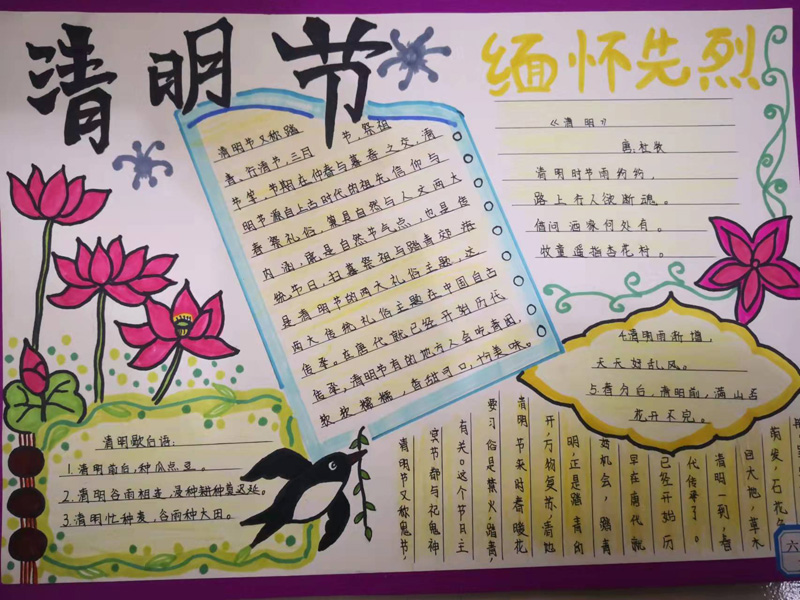 清明节
缅怀先烈
清明节又称踏
节,祭祖
青、行清节,三月
节等,节期在仲春与暮春之交,清
明节源自上古时代的祖先信仰与
春祭礼俗,兼具自然与人文两大
内涵,既是自然节气点,也是传
统节日,扫墓祭祖与踏青郊游
是清明节的两大礼俗主题,这
两大传统礼俗主题在中国自古
传承,在唐代就已经开始历代
传承,清明节有的地方人会吃青团,
软软糯糯,香甜可口,
美味。
《清明》
唐,杜牧
清明时节雨纷纷,
路上行人欲断魂。
借问酒家何处有。
牧童遥指杏花村。
清明雨渐增,
天天好刮风。
清明前,满山
花开不完。
清明歌白语:
1.清明前后,种瓜点豆。
2.清明谷雨相连,浸种耕种莫迟延。
3.清明忙种麦,谷雨种大田。
清明节又称鬼节,
冥节都与祀鬼神
有关。这个节日主
要习俗是禁火,踏青,
清明节来时春暖花
开,万物复苏,清
明,正是踏青的
机会,踏青
早在唐代就
已经开始历
代传承了。
清明一到,春
回大地,草木
萌发,百花
六